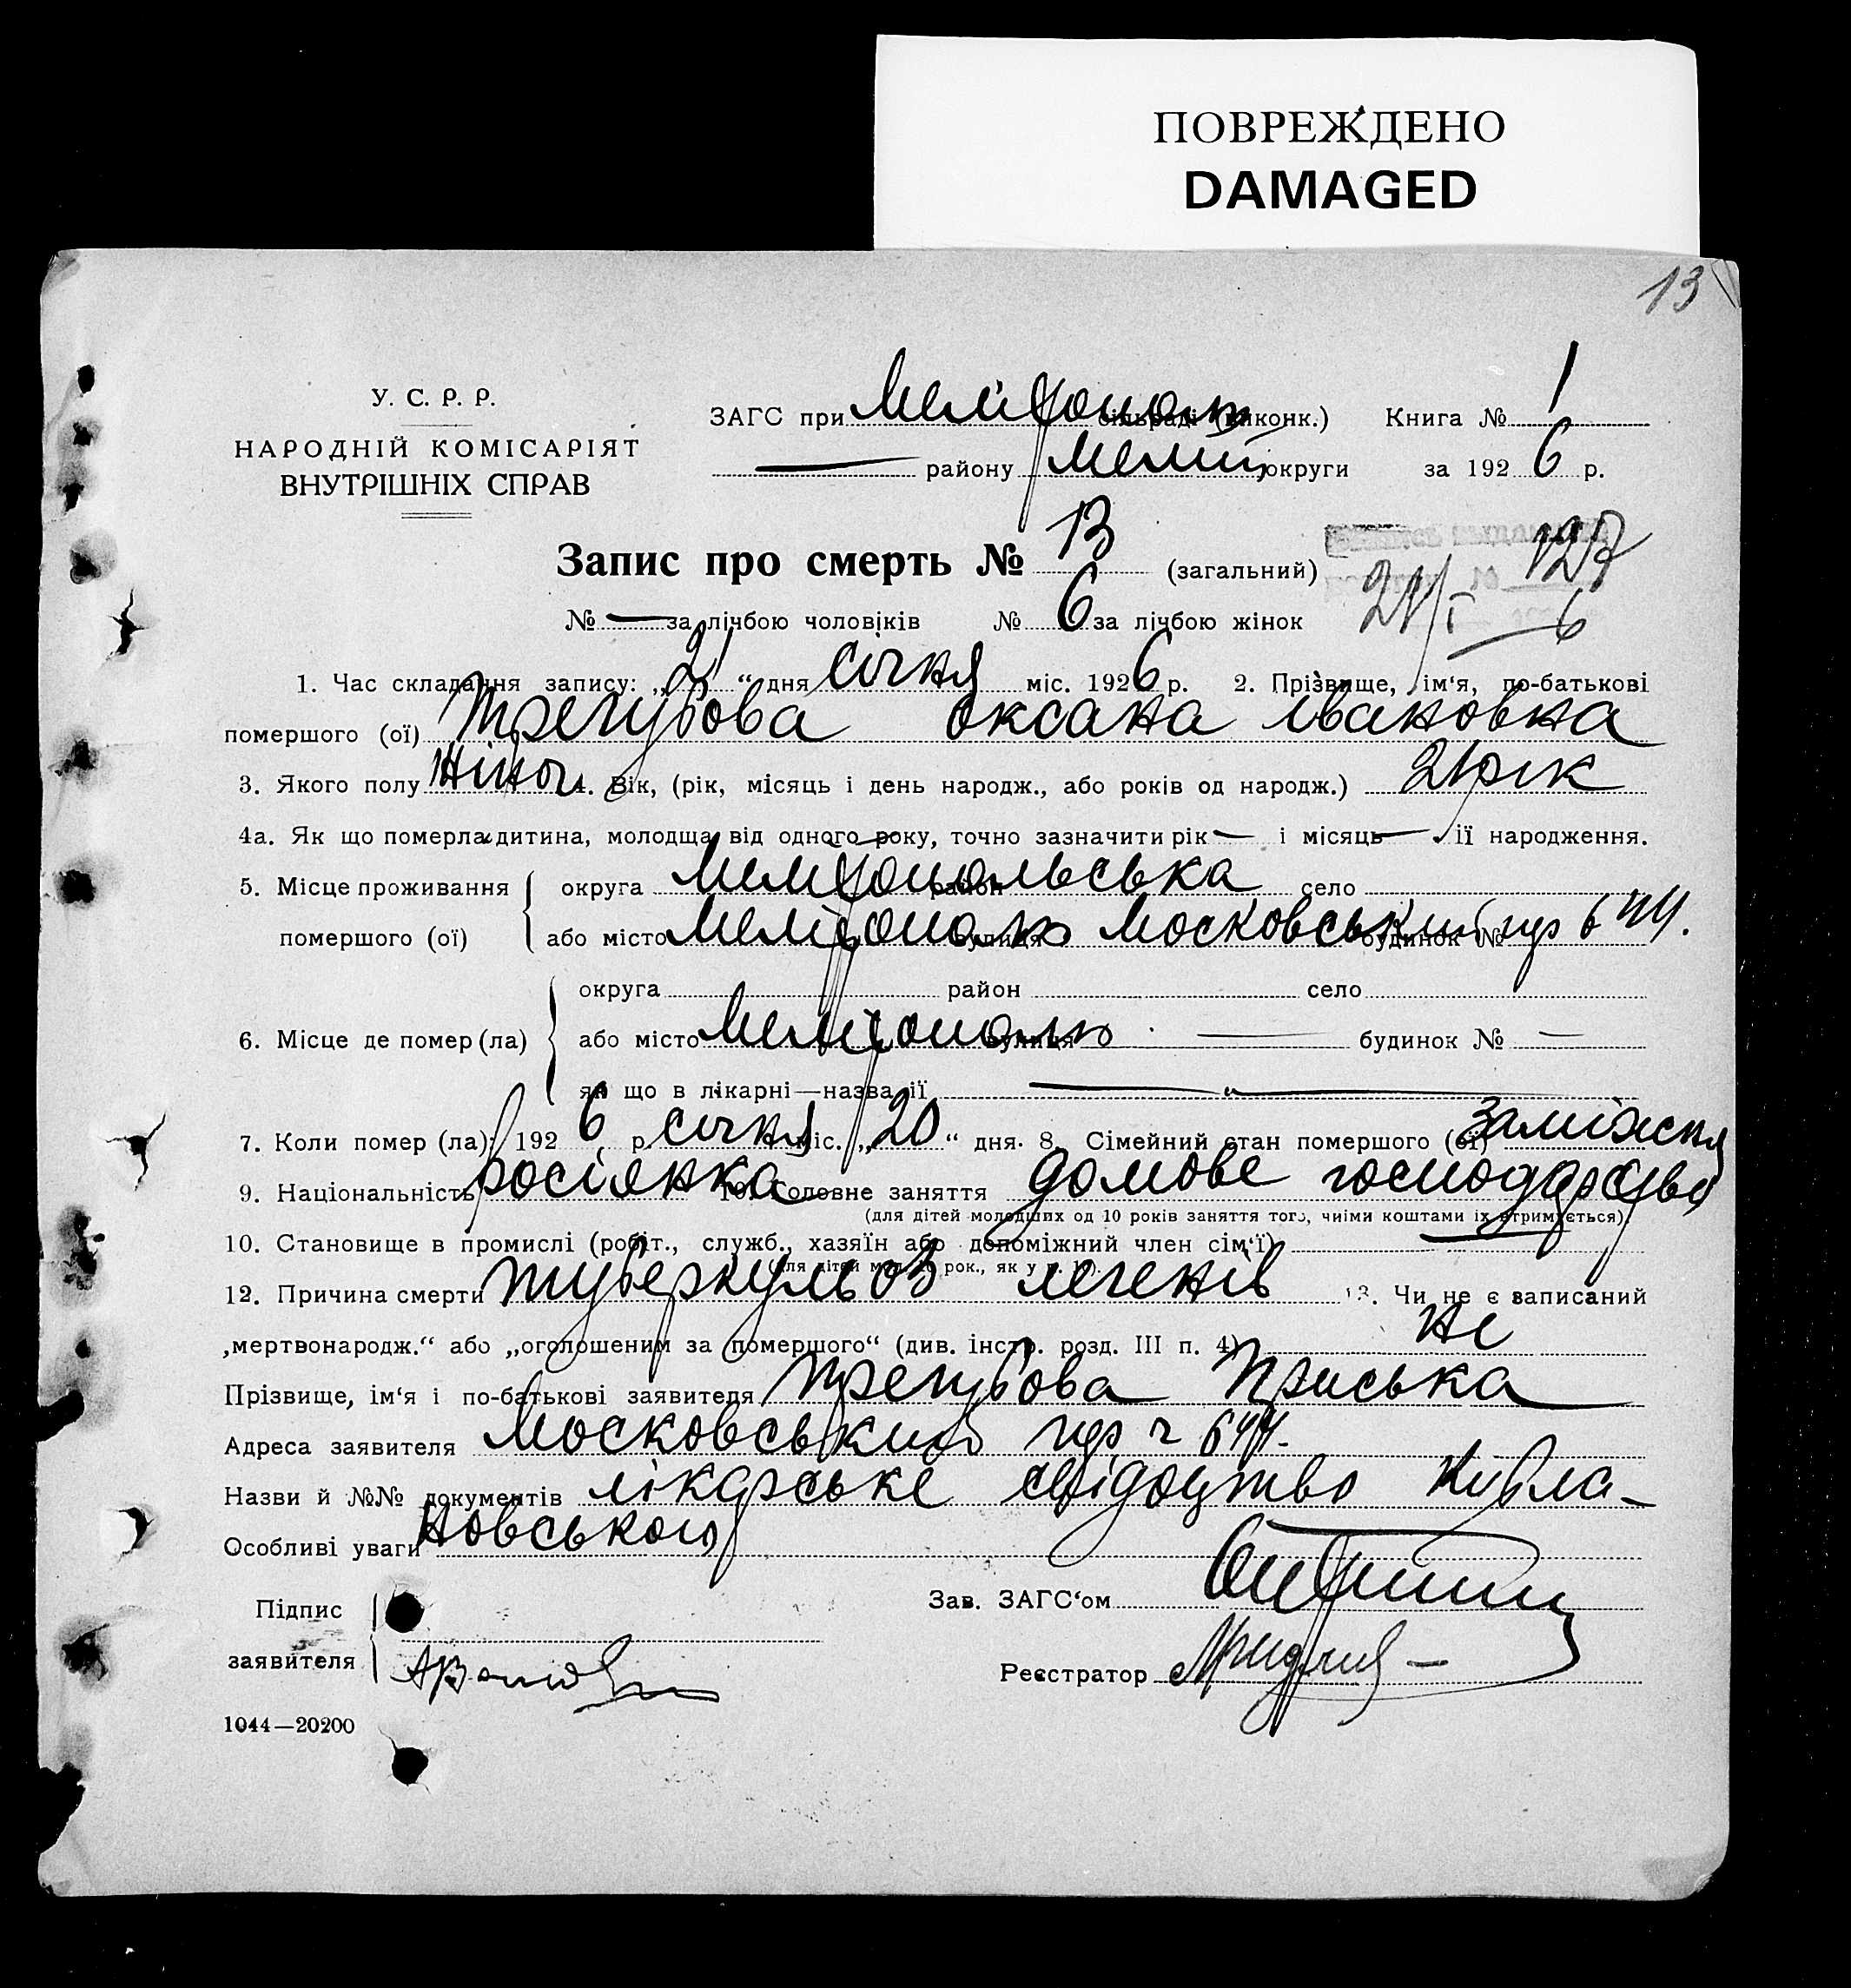 ПОВРЕЖДЕНО
DAMAGED
13
У. С. Р. Р.
НАРОДНІЙ КОМІСАРІЯТ
ВНУТРІШНІХ СПРАВ
ЗАГС при Мелітополь сільраді (виконк.) Книга № 1
— району Меліт округи за 1926 р.
Запис про смерть № 13 (загальний)
127
№ — за лічбою чоловіків № 6 за лічбою жінок
21/I 6
1. Час складання запису: „21“ дня січня міс. 1926 р. 2. Прізвище, ім‘я, по-батькові
помершого (ої) Трегубова Оксана Івановна
3. Якого полу жіноч 4. Вік, (рік, місяць і день народж., або років од народж.) 21 рік
4а. Як що померла дитина, молодща від одного року, точно зазначити рік — і місяць — її народження.
5. Місце проживання помершого (ої) округа Мелітопольська район село
або місто Мелітополь вулиця Московський пр будинок № 644.
6. Місце де помер (ла) округа район село
або місто Мелітополь вулиця — будинок № —
як що в лікарні—назва її —
7. Коли помер (ла): 1926 р. січня міс. „20“ дня. 8. Сімейний стан помершого (ої) заміжня
9. Національність росіянка 10. Головне заняття домове господарство
(для дітей молодших од 10 років заняття того, чиїми коштами їх втримується).
10. Становище в промислі (робіт., служб., хазяїн або допоміжний член сім‘ї)
(для дітей мол. 10 рок., як у п. 10).
12. Причина смерти туберкульоз легенів 13. Чи не є записаний
„мертвонародж.“ або „оголошеним за помершого“ (див. інстр. розд. III п. 4) не
Прізвище, ім‘я і по-батькові заявителя Трегубова Приська
Адреса заявителя Московський пр 644.
Назви й №№ документів лікарське свідоцтво Курла-
Особливі уваги новського
Підпис заявителя
Зав. ЗАГС‘ом
Реєстратор
1044—20200